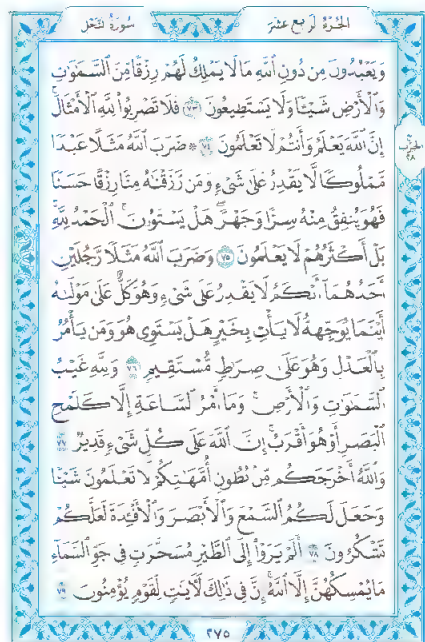 سُورَةُ النَّحْلِ الجُزءُ الرَّابِعَ عَشَرَ
وَيَعْبُدُونَ مِن دُونِ ٱللَّهِ مَا لَا يَمْلِكُ لَهُمْ رِزْقًا مِّنَ ٱلسَّمَٰوَٰتِ
وَٱلْأَرْضِ شَيْـًٔا وَلَا يَسْتَطِيعُونَ ٧٣ فَلَا تَضْرِبُوا۟ لِلَّهِ ٱلْأَمْثَالَ
إِنَّ ٱللَّهَ يَعْلَمُ وَأَنتُمْ لَا تَعْلَمُونَ ٧٤ ۞ ضَرَبَ ٱللَّهُ مَثَلًا عَبْدًا
الحزب ٢٨
مَّمْلُوكًا لَّا يَقْدِرُ عَلَىٰ شَىْءٍ وَمَن رَّزَقْنَٰهُ مِنَّا رِزْقًا حَسَنًا
فَهُوَ يُنفِقُ مِنْهُ سِرًّا وَجَهْرًا ۖ هَلْ يَسْتَوُۥنَ ۚ ٱلْحَمْدُ لِلَّهِ
بَلْ أَكْثَرُهُمْ لَا يَعْلَمُونَ ٧٥ وَضَرَبَ ٱللَّهُ مَثَلًا رَّجُلَيْنِ
أَحَدُهُمَآ أَبْكَمُ لَا يَقْدِرُ عَلَىٰ شَىْءٍ وَهُوَ كَلٌّ عَلَىٰ مَوْلَىٰهُ
أَيْنَمَا يُوَجِّههُّ لَا يَأْتِ بِخَيْرٍ هَلْ يَسْتَوِى هُوَ وَمَن يَأْمُرُ
بِٱلْعَدْلِ وَهُوَ عَلَىٰ صِرَٰطٍ مُّسْتَقِيمٍ ٧٦ وَلِلَّهِ غَيْبُ
ٱلسَّمَٰوَٰتِ وَٱلْأَرْضِ ۚ وَمَآ أَمْرُ ٱلسَّاعَةِ إِلَّا كَلَمْحِ
ٱلْبَصَرِ أَوْ هُوَ أَقْرَبُ ۚ إِنَّ ٱللَّهَ عَلَىٰ كُلِّ شَىْءٍ قَدِيرٌ ٧٧
وَٱللَّهُ أَخْرَجَكُم مِّنۢ بُطُونِ أُمَّهَٰتِكُمْ لَا تَعْلَمُونَ شَيْـًٔا
وَجَعَلَ لَكُمُ ٱلسَّمْعَ وَٱلْأَبْصَٰرَ وَٱلْأَفْـِٔدَةَ لَعَلَّكُمْ
تَشْكُرُونَ ٧٨ أَلَمْ يَرَوْا۟ إِلَى ٱلطَّيْرِ مُسَخَّرَٰتٍ فِى جَوِّ ٱلسَّمَآءِ
مَا يُمْسِكُهُنَّ إِلَّا ٱللَّهُ ۗ إِنَّ فِى ذَٰلِكَ لَءَايَٰتٍ لِّقَوْمٍ يُؤْمِنُونَ ٧٩
٢٧٥